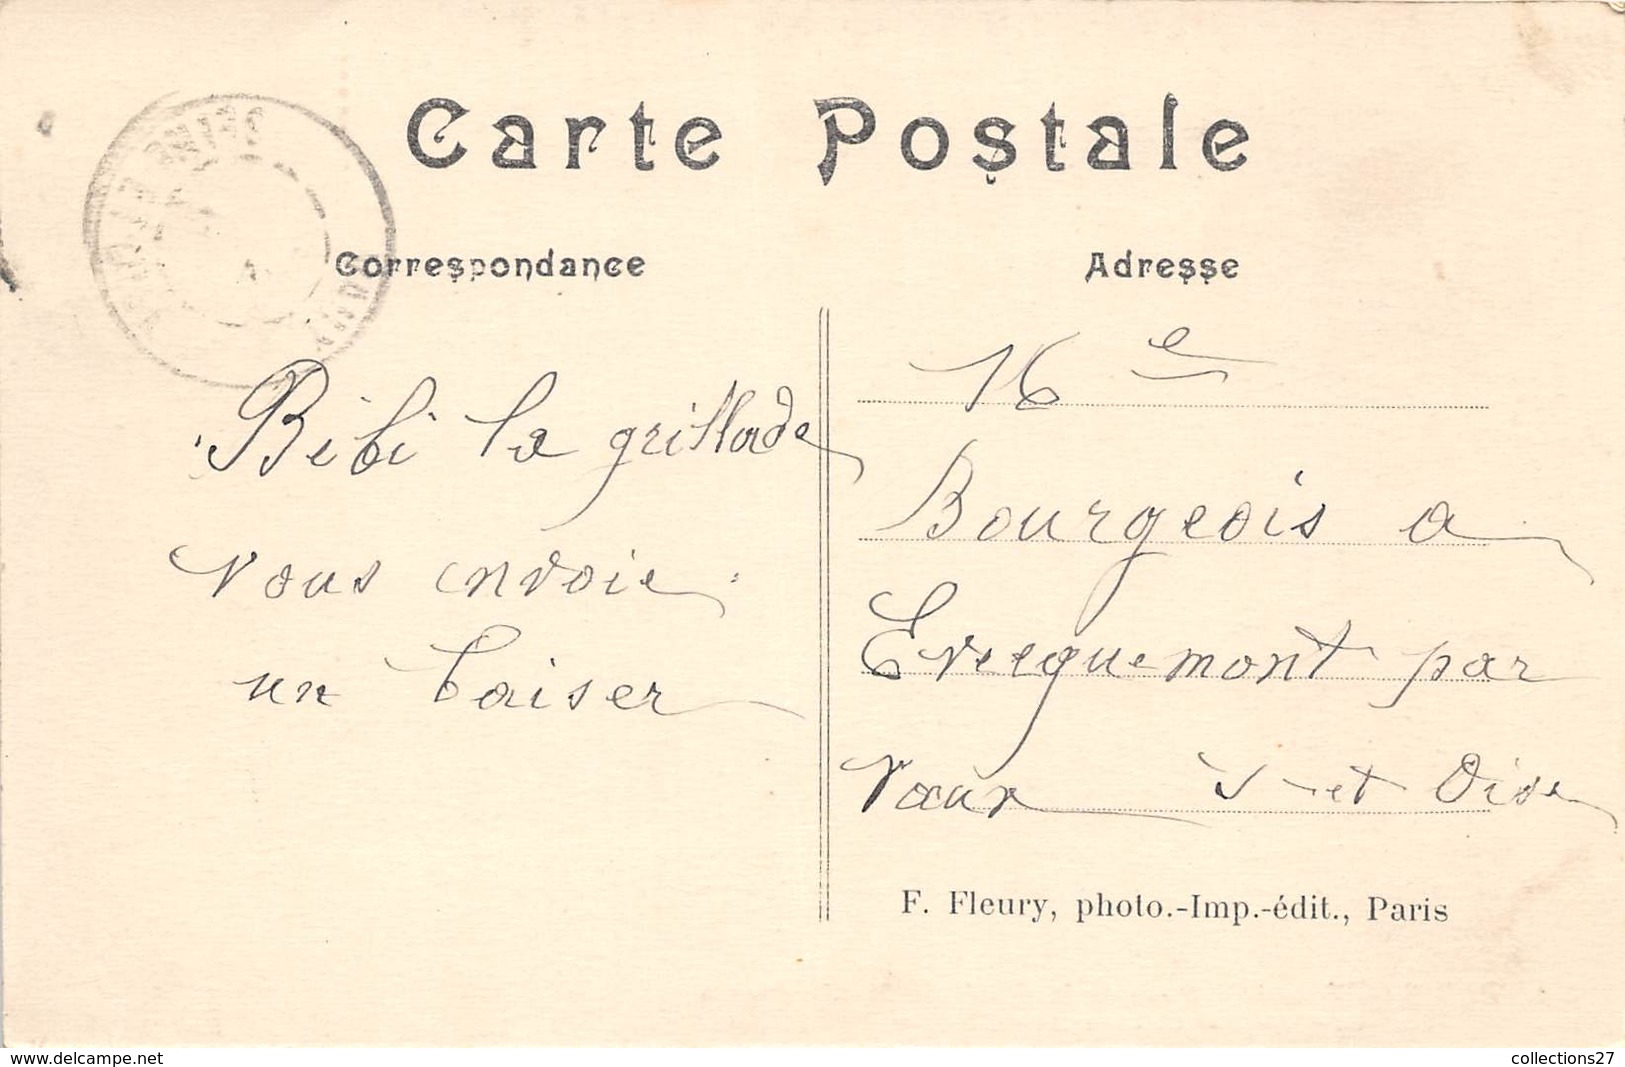 Carte Postale
Correspondance
Adresse
Bibi la grillade
vous envoie
un baiser
16 e
Bourgeois a
Evecquemont par
Vaux S et Oise
F. Fleury, photo.-Imp.-édit., Paris
www.delcampe.net
collections27